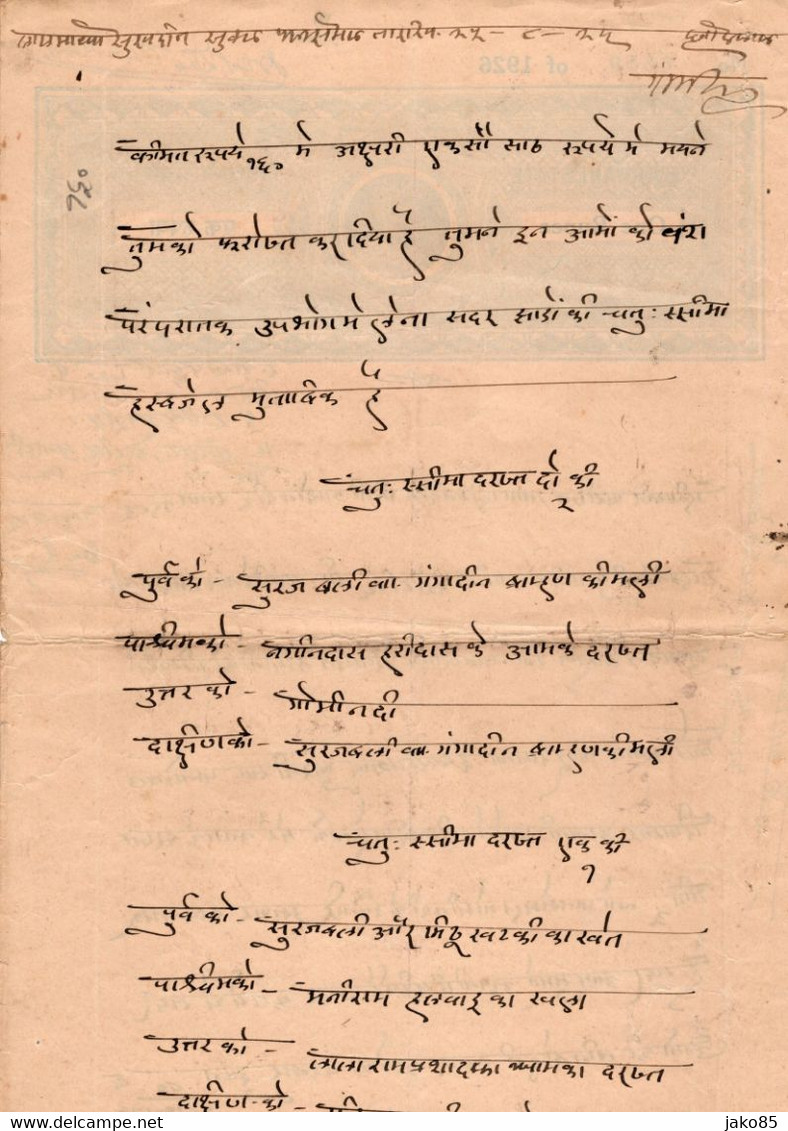 सुखदीन सुकल तारीख २५-८-२६
of 1926
१६०
कीमत रूपये १६० मे अक्षरी एकसौ साठ रूपये मे मयने
तुमको फरोख्त कर दिया है तुमने इन आमों को वंश
परंपरातक उपभोगमे लेना सदर झाडोंकी चतुः स्सीमा
हस्बजेल मुताबिक है
चतुः स्सीमा दरख्त दो की
२
पुर्व को - सुरजबली वा. गंगादीन ब्राम्हण की
पाश्चीमको - नगीनदास हरीदास के आमके दरख्त
उत्तर को - गोमी नदी
दाक्षीणको - सुरजबली वा. गंगादीन ब्राम्हण की
चतुः स्सीमा दरख्त एक की
१
पुर्व को - सुरजबली और मिठू खटकी का खेत
पाश्चीमको - मनीराम हलवाइ का
उत्तर को - लाला रामप्रशादका आमका दरख्त
दाक्षीण को -
jako85